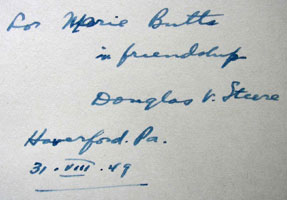 For Marie Butts
in friendship
Douglas V. Steere
Haverford. Pa.
31 · VIII · 49